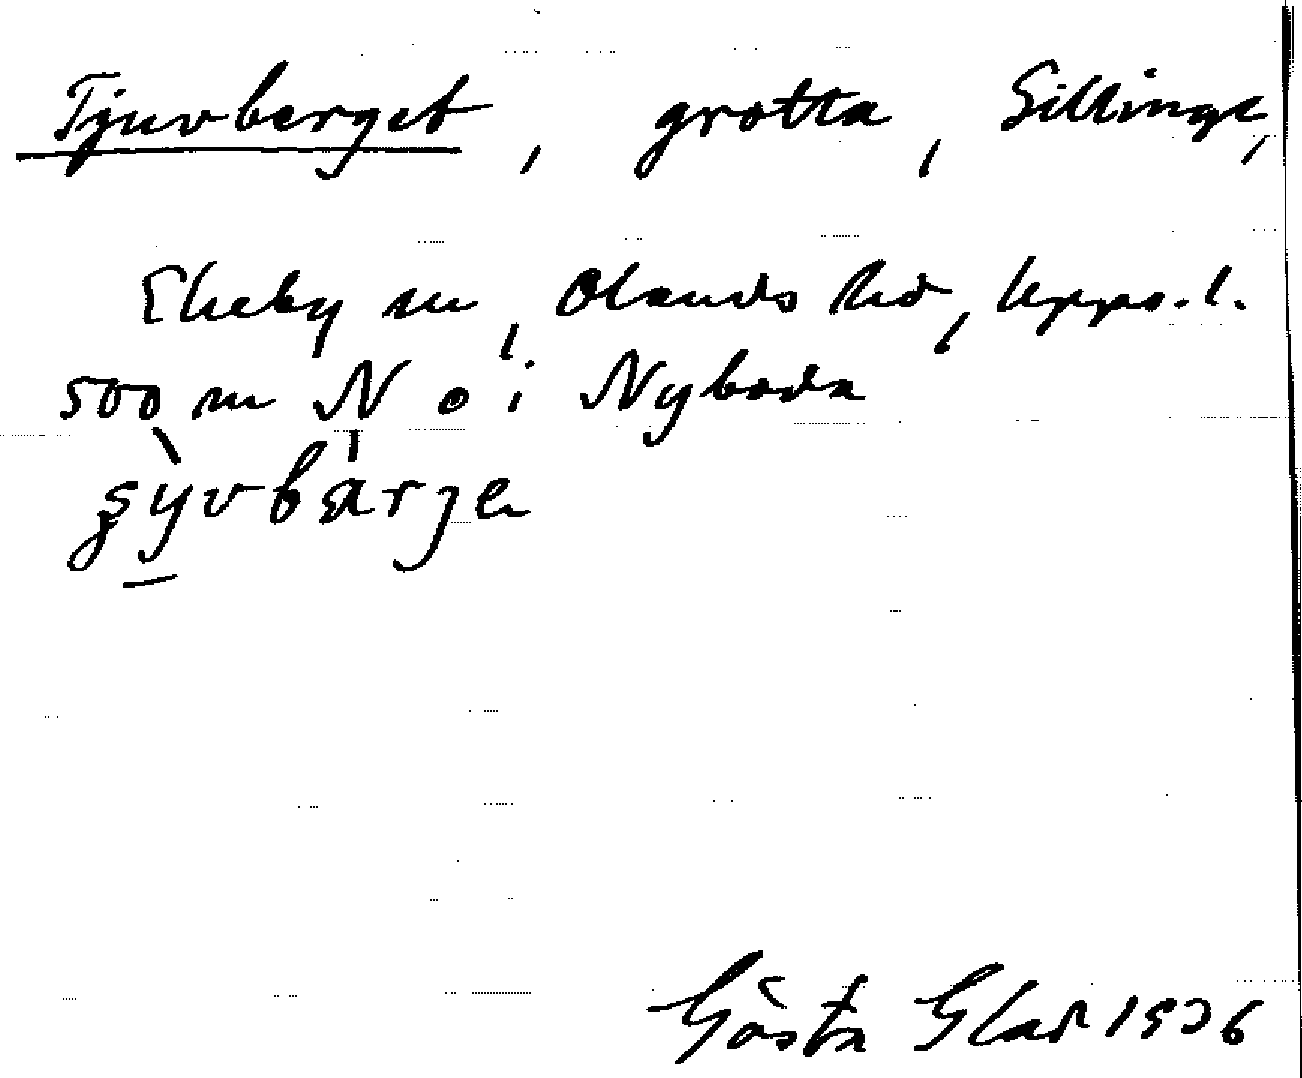 Tjuvberget, grotta, Sillinge,
Ekeby sn, Olands hd, Upps. l.
500 m N o i Nyboda
Gösta Glad 1936